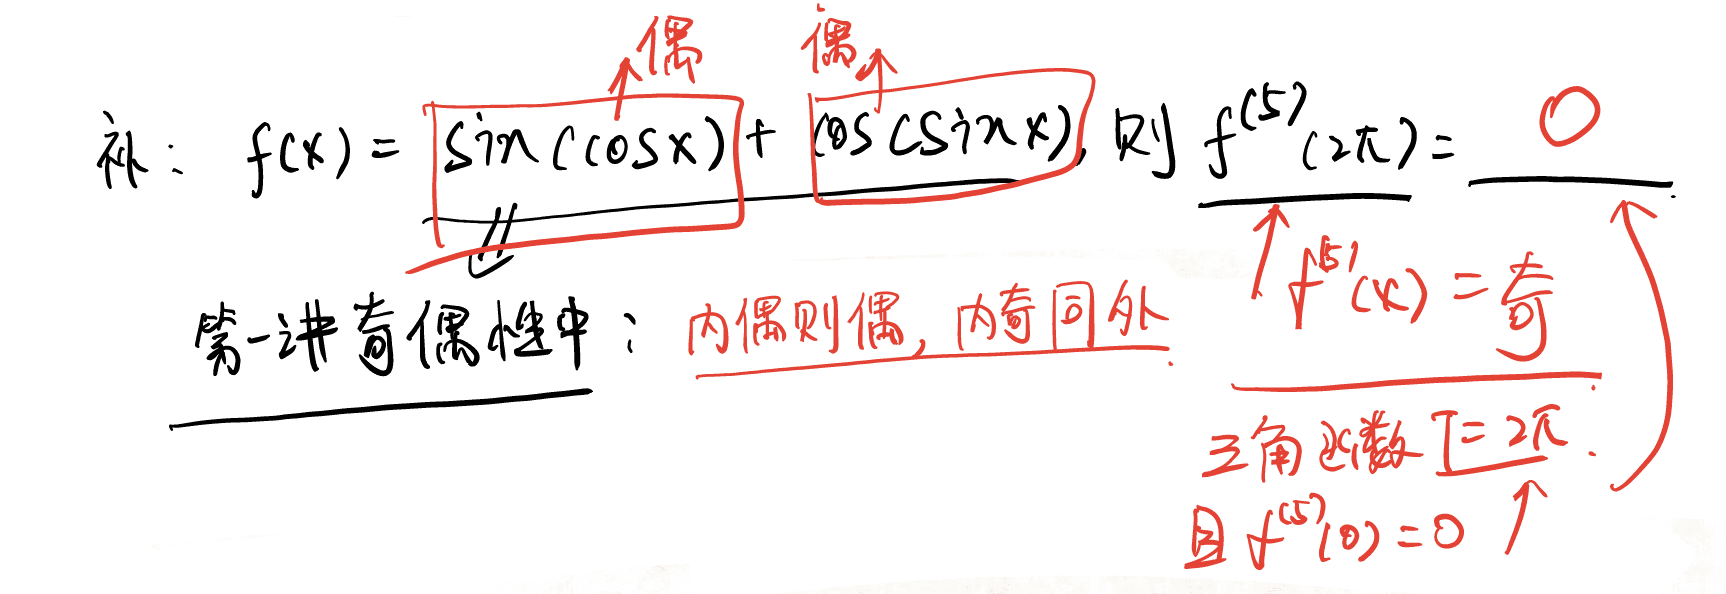 偶 偶
补: f(x) = sin(cosx) + cos(sinx), 则 f^(5)(2π) = 0
第一讲奇偶性中: 内偶则偶, 内奇同外
f^(5)(x) = 奇
三角函数 T=2π.
且 f^(5)(0) = 0